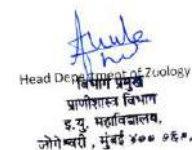 Head Department of Zuology
विभाग प्रमुख
प्राणीशास्त्र विभाग
इ. यु. महाविद्यालय,
जोगेश्वरी, मुंबई ४०० ०६०.